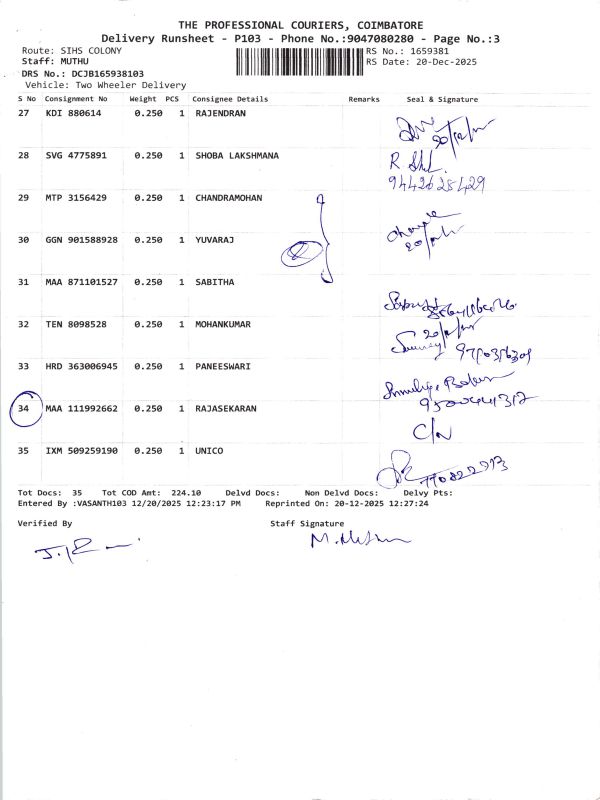 THE PROFESSIONAL COURIERS, COIMBATORE
Delivery Runsheet - P103 - Phone No.:9047080280 - Page No.:3
Route: SIHS COLONY RS No.: 1659381
Staff: MUTHU RS Date: 20-Dec-2025
DRS No.: DCJB165938103
Vehicle: Two Wheeler Delivery
S No Consignment No Weight PCS Consignee Details Remarks Seal & Signature
27 KDI 880614 0.250 1 RAJENDRAN
28 SVG 4775891 0.250 1 SHOBA LAKSHMANA R
9442625429
29 MTP 3156429 0.250 1 CHANDRAMOHAN
30 GGN 901588928 0.250 1 YUVARAJ
31 MAA 871101527 0.250 1 SABITHA
32 TEN 8098528 0.250 1 MOHANKUMAR
33 HRD 363006945 0.250 1 PANEESWARI
34 MAA 111992662 0.250 1 RAJASEKARAN
C/N
35 IXM 509259190 0.250 1 UNICO
Tot Docs: 35 Tot COD Amt: 224.10 Delvd Docs: Non Delvd Docs: Delvy Pts:
Entered By :VASANTH103 12/20/2025 12:23:17 PM Reprinted On: 20-12-2025 12:27:24
Verified By Staff Signature